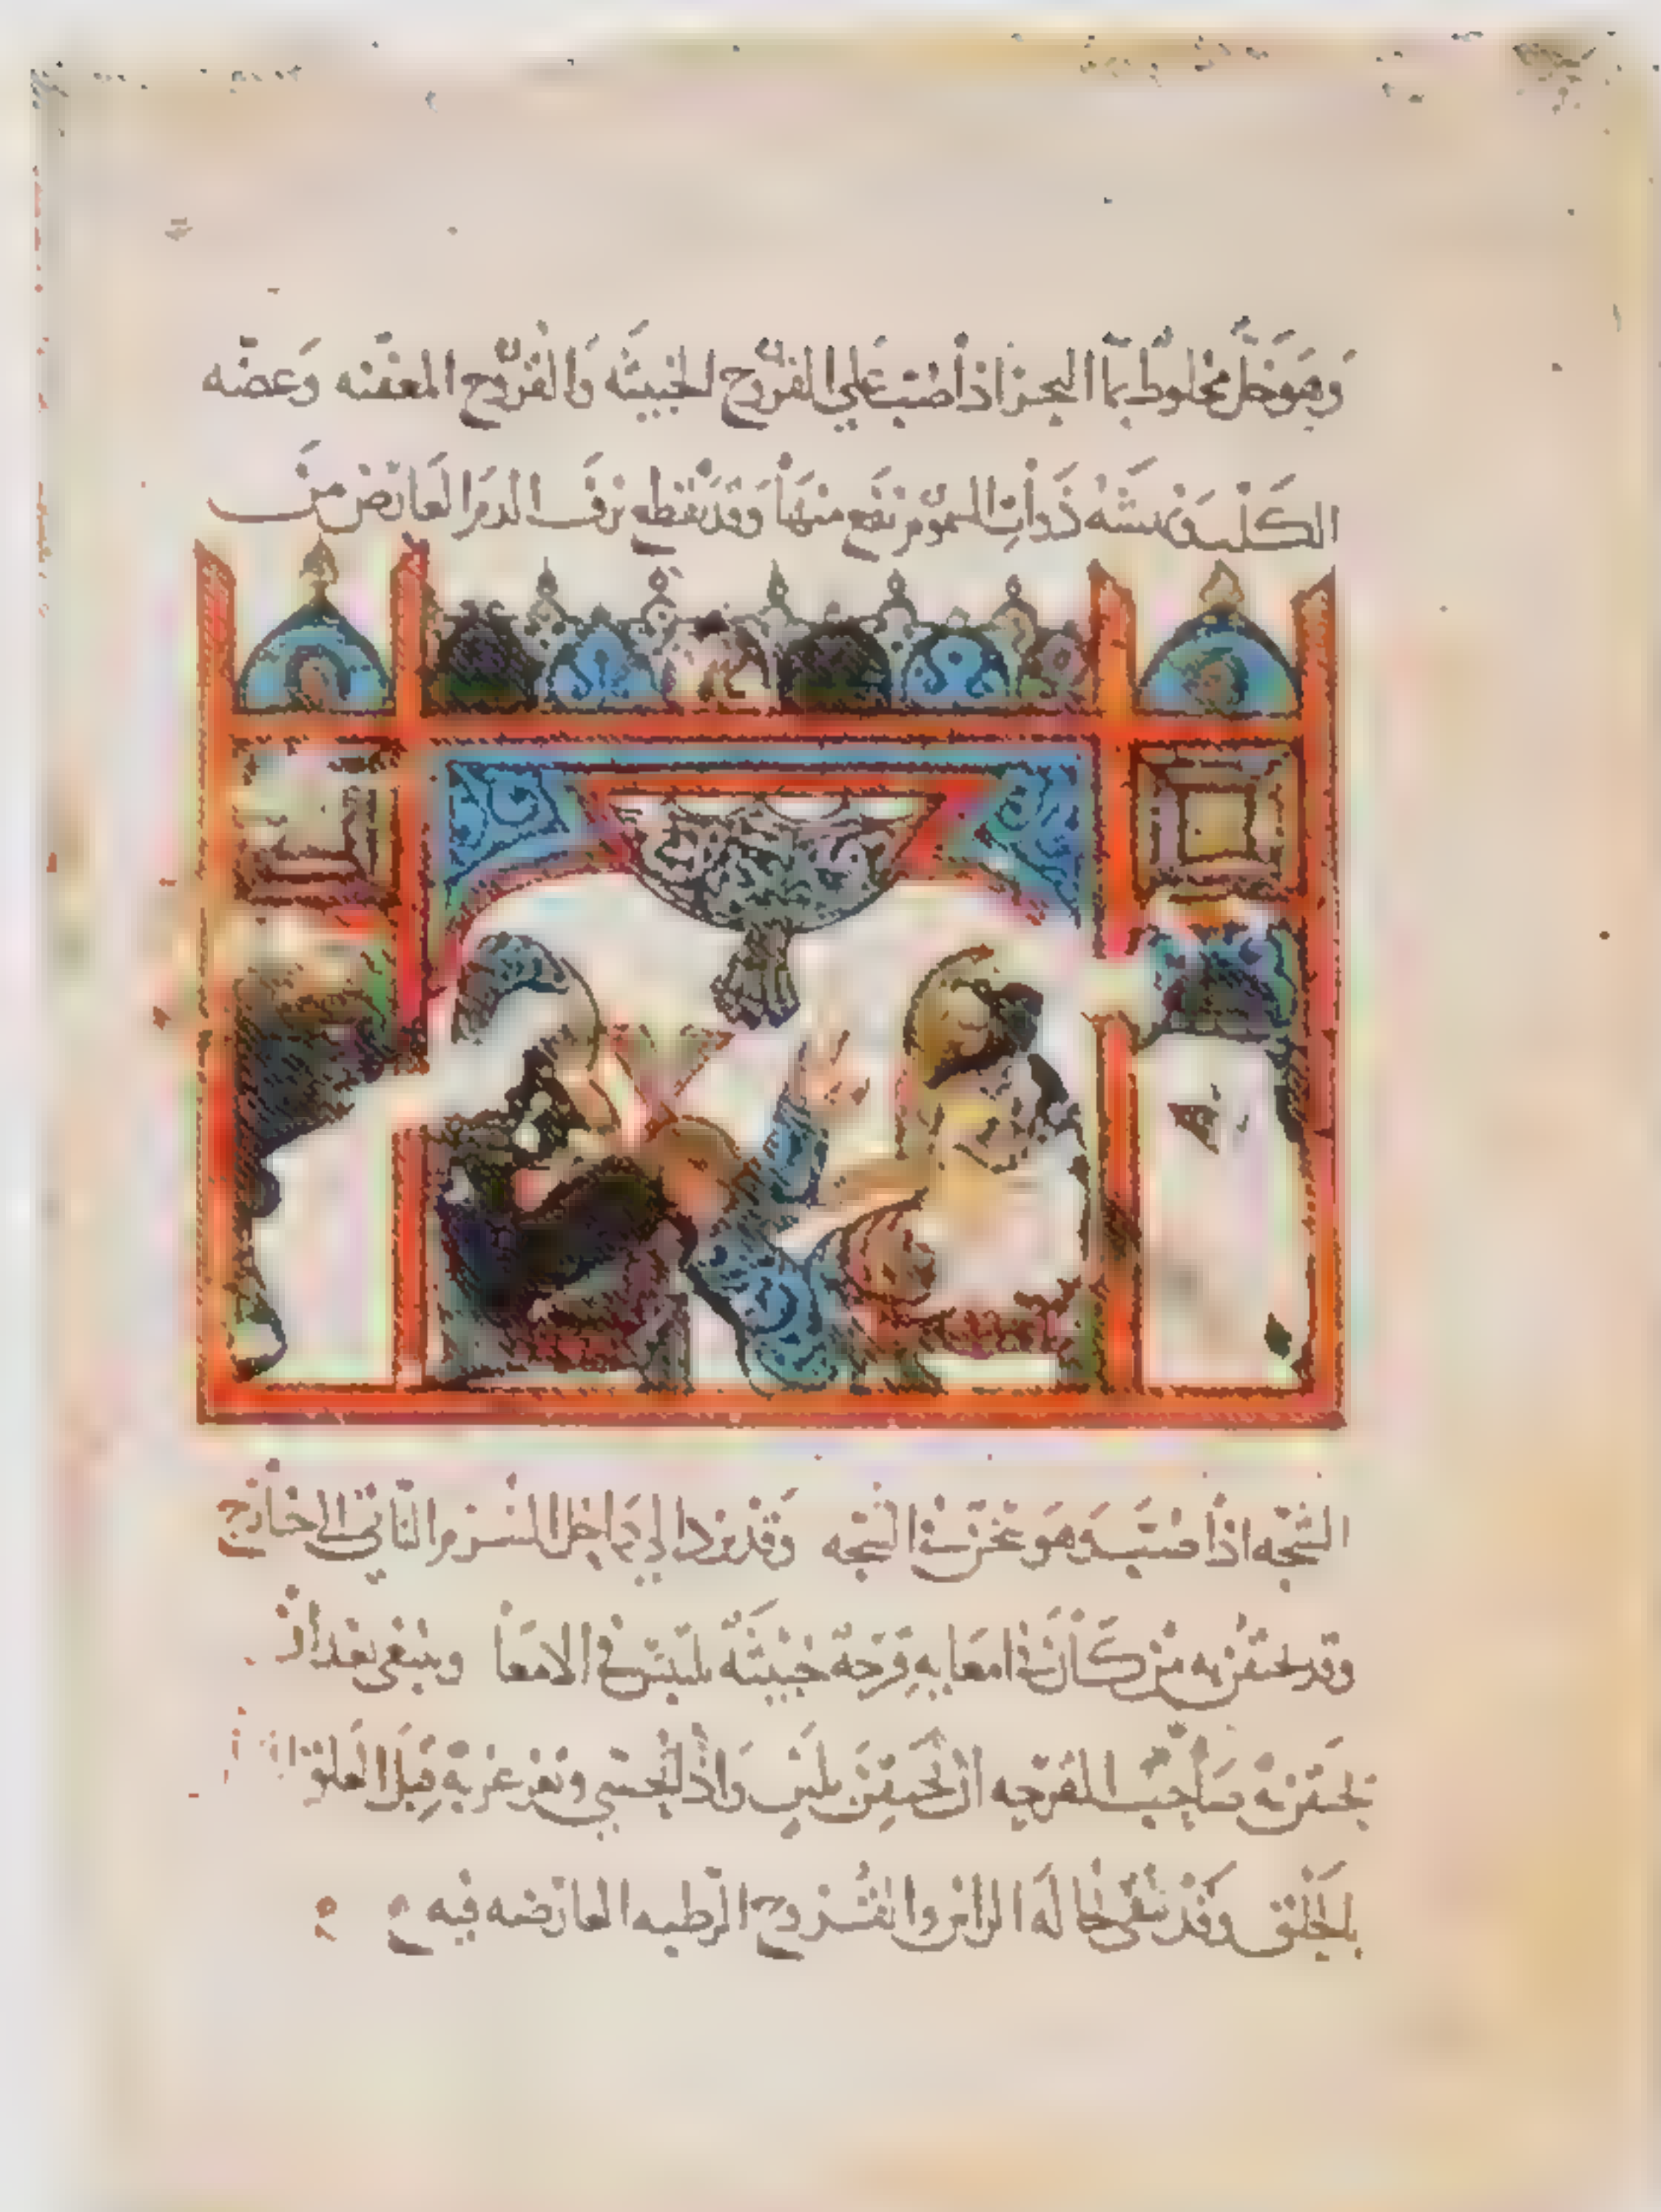 وهو خل مخلوط بما البحر اذا صب علي القروح الخبيثه والقروح المعفنه وعضه
الكلب ونهشه ذوات السموم نفع منها وقد يقطع نزف الدم العارض من
الشجه اذا صب وهو سخن الشجه وقد يرد الي داخل السرم الناتي الي خارج
وقد يحتقن به من كان في امعايه قرحة خبيثه في الامعا وينبغي بعد ان
يحتقن به صاحب القرحه ان يحتقن بلبن واذا تحسي وتغرغر به قتل العلق
بالحلق وقد ينقي له الراس والقروح الرطبه العارضه فيه